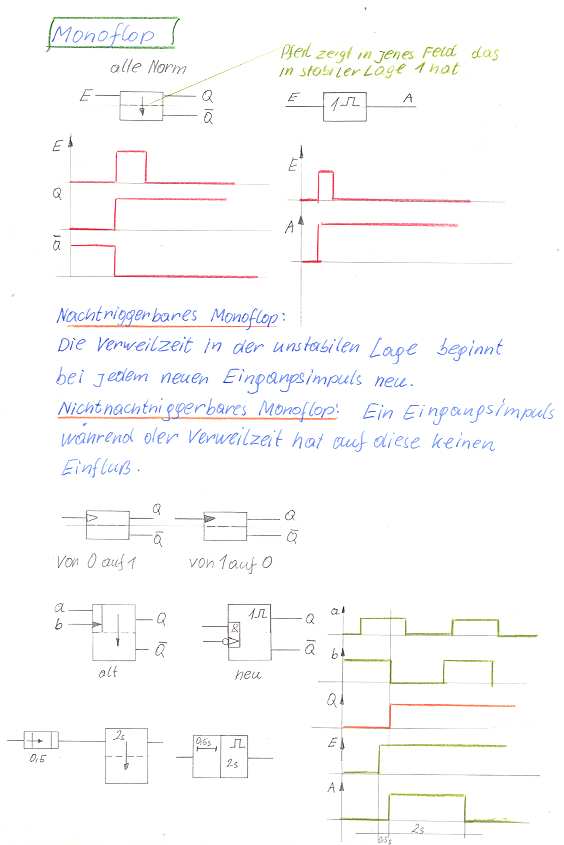 Monoflop
alte Norm
Pfeil zeigt in jenes Feld das
in stabiler Lage 1 hat
E
Q
Q̅
E
1
A
E
Q
Q̅
E
A
Nachtriggerbares Monoflop:
Die Verweilzeit in der unstabilen Lage beginnt
bei jedem neuen Eingangsimpuls neu.
Nichtnachtriggerbares Monoflop: Ein Eingangsimpuls
während der Verweilzeit hat auf diese keinen
Einfluß.
Q
Q̅
Q
Q̅
von 0 auf 1
von 1 auf 0
a
b
Q
Q̅
alt
1
&
Q
Q̅
neu
a
b
Q
E
A
0,5s
2s
2s
0,5s
2s